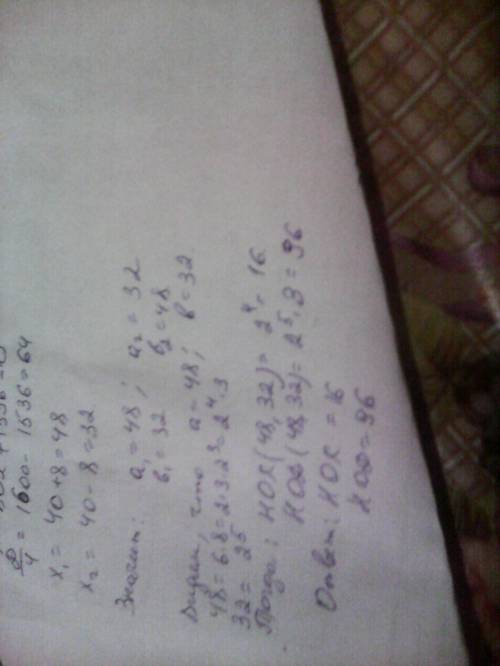 D/4 = 1600 - 1536 = 64
x₁ = 40 + 8 = 48
x₂ = 40 - 8 = 32
Значит: a₁ = 48; a₂ = 32
b₁ = 32 b₂ = 48
Видем, что a = 48; b = 32
48 = 6·8 = 2·3·2³ = 2⁴·3
32 = 2⁵
Тогда: НОК(48, 32) = 2⁴ = 16
НОД(48, 32) = 2⁵·3 = 96
Ответ: НОК = 16
НОД = 96